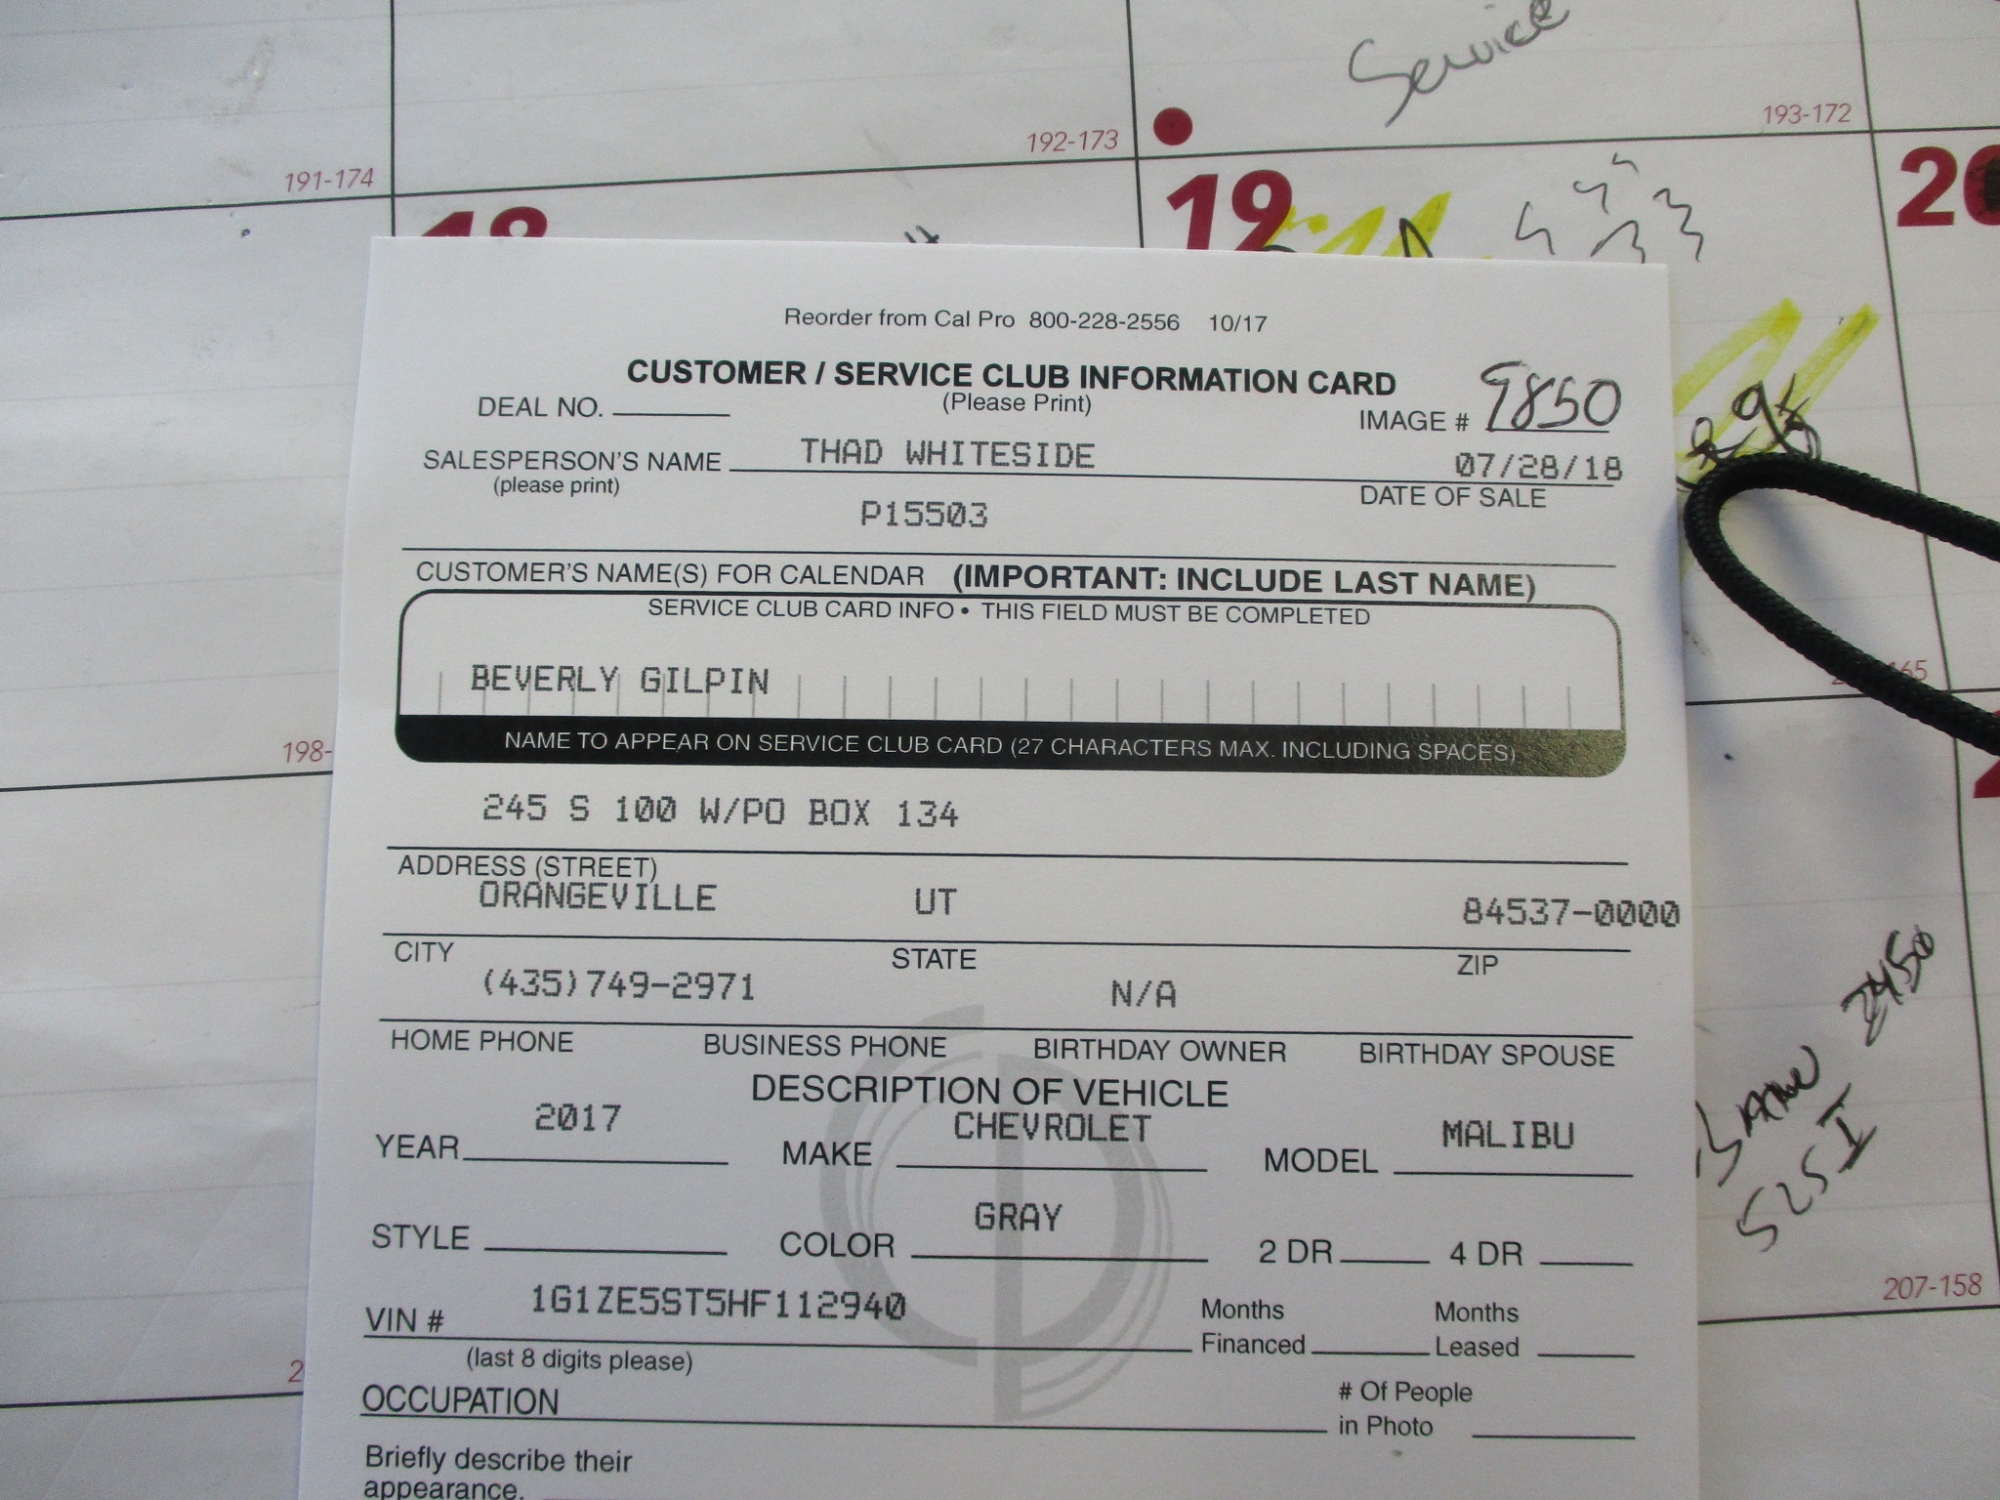 Service
191-174
192-173
193-172
18
19
20
Reorder from Cal Pro 800-228-2556 10/17
CUSTOMER / SERVICE CLUB INFORMATION CARD
DEAL NO.
(Please Print)
IMAGE # 9850
SALESPERSON'S NAME THAD WHITESIDE 07/28/18
(please print)
DATE OF SALE
P15503
CUSTOMER'S NAME(S) FOR CALENDAR (IMPORTANT: INCLUDE LAST NAME)
SERVICE CLUB CARD INFO • THIS FIELD MUST BE COMPLETED
BEVERLY GILPIN
198-
NAME TO APPEAR ON SERVICE CLUB CARD (27 CHARACTERS MAX. INCLUDING SPACES)
245 S 100 W/PO BOX 134
ADDRESS (STREET)
ORANGEVILLE UT 84537-0000
CITY STATE ZIP
(435)749-2971 N/A
HOME PHONE BUSINESS PHONE BIRTHDAY OWNER BIRTHDAY SPOUSE
DESCRIPTION OF VEHICLE
YEAR 2017 MAKE CHEVROLET MODEL MALIBU
STYLE COLOR GRAY 2 DR 4 DR
VIN # 1G1ZE5ST5HF112940
(last 8 digits please)
Months Financed
Months Leased
207-158
OCCUPATION
# Of People
in Photo
Briefly describe their
appearance.